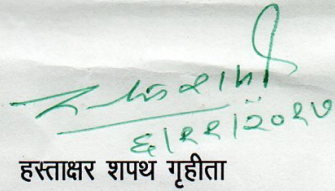 ६/११/२०१७
हस्ताक्षर शपथ गृहीता